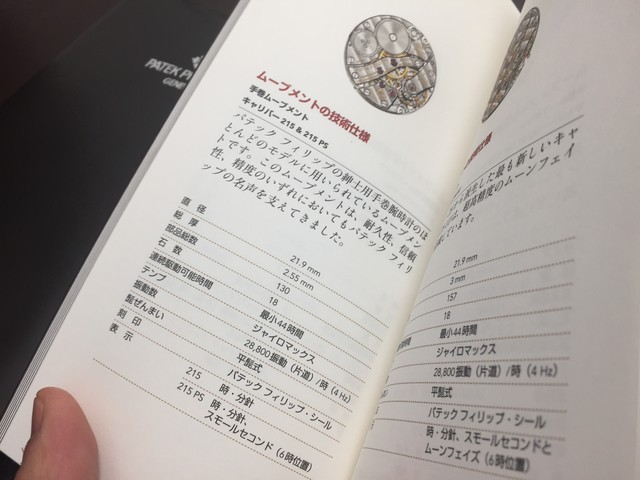 PATEK P
GENE
ムーブメントの技術仕様
手巻ムーブメント
キャリバー 215 & 215 PS
パテック フィリップの紳士用手巻腕時計のほ
とんどのモデルに用いられているムーブメン
トです。このムーブメントは、耐久性、信頼
性、精度のいずれにおいてもパテック フィリ
ップの名声を支えてきました。
直 径 21.9 mm
総 厚 2.55 mm
部品総数 130
石 数 18
連続駆動可能時間 最小44時間
テンプ ジャイロマックス
振動数 28,800振動（片道）/時（4 Hz）
髭ぜんまい 平髭式
刻 印 パテック フィリップ・シール
表 示
215 時・分針
215 PS 時・分針、
スモールセコンド（6時位置）
した最も新しいキャ
最高精度のムーンフェイ
しています。
21.9 mm
3 mm
157
18
最小44時間
ジャイロマックス
28,800振動（片道）/時（4 Hz）
平髭式
パテック フィリップ・シール
時・分針、スモールセコンドと
ムーンフェイズ（6時位置）